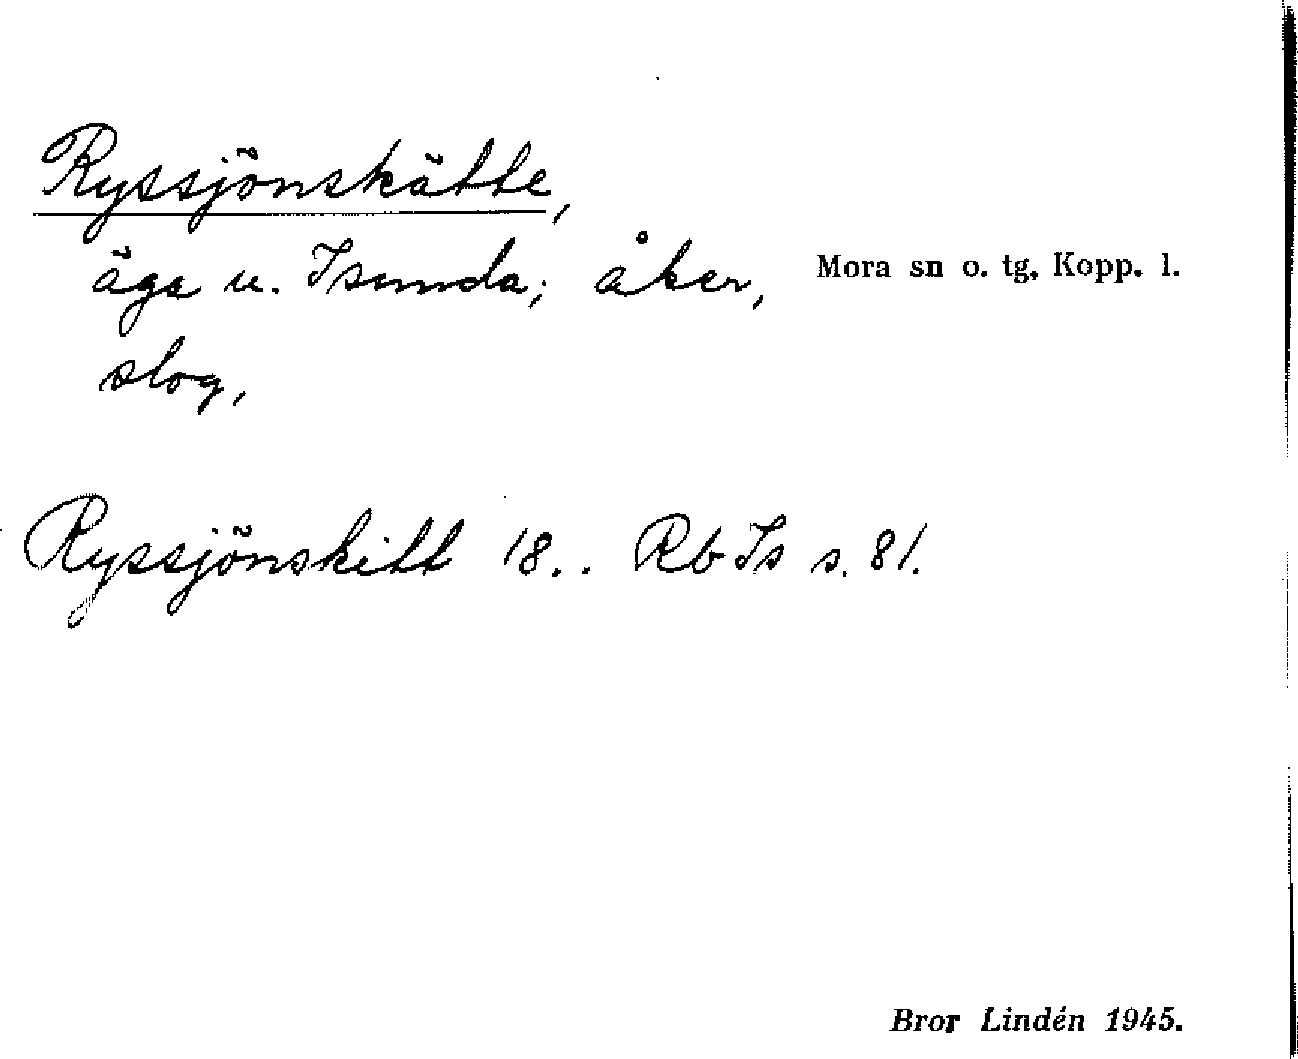 Ryssjönskätte,
äga u. Isunda; åker, Mora sn o. tg. Kopp. l.
slog,
Ryssjönskitt 18.. Rb Is s. 81.
Bror Lindén 1945.